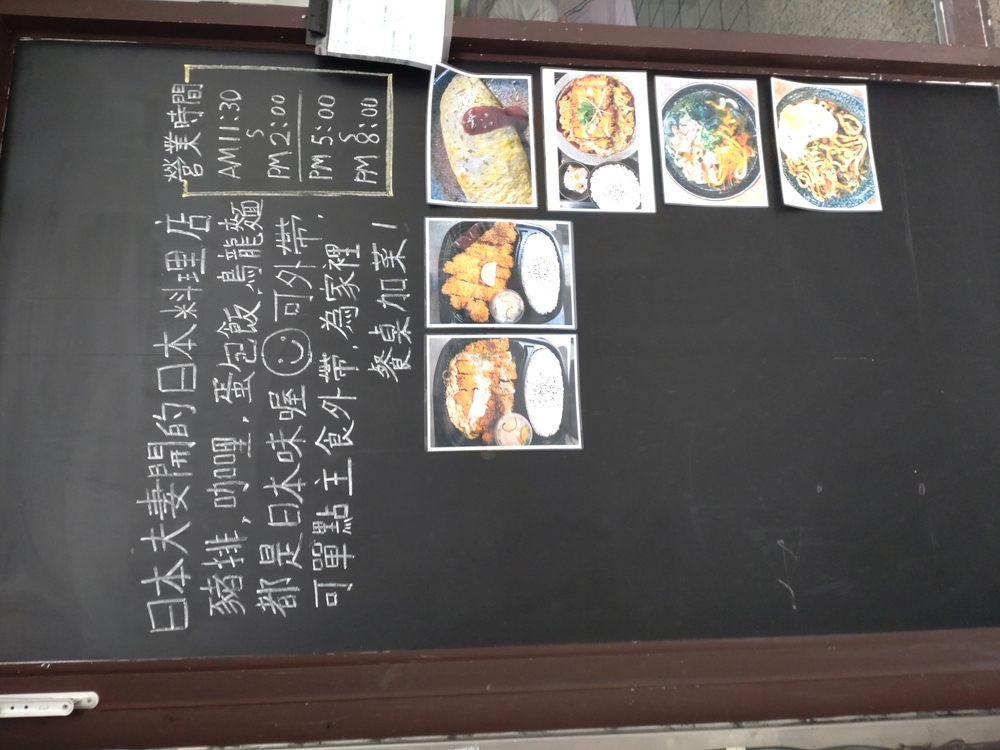 日本夫妻開的日本料理店
豬排,咖哩,蛋包飯,烏龍麵
都是日本味喔 可外帶,
可單點主食外帶,為家裡
餐桌加菜!
營業時間
AM11:30
S
PM2:00
PM5:00
S
PM8:00